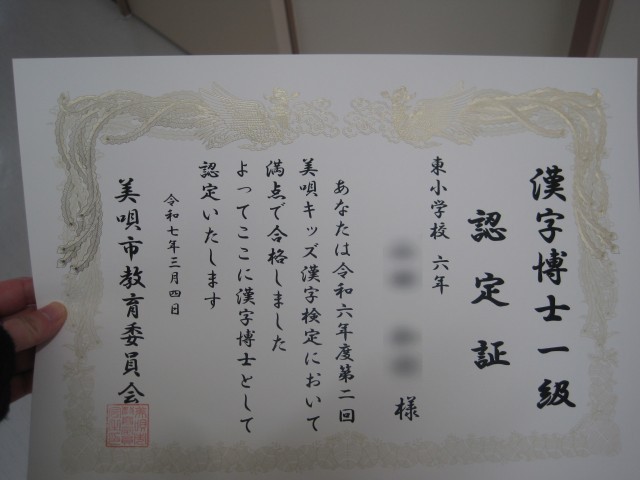 漢字博士一級
認定証
東小学校 六年
様
あなたは令和六年度第二回
美唄キッズ漢字検定において
満点で合格しました
よってここに漢字博士として
認定いたします
令和七年三月四日
美唄市教育委員会